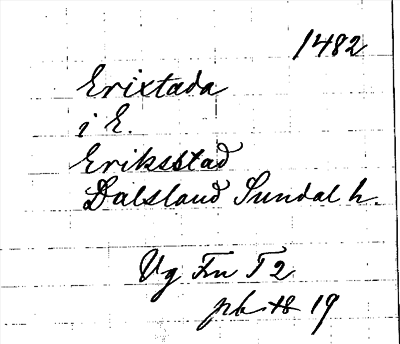 1482
Erixtada
i E.
Eriksstad
Dalsland Sundal h.
Vg Fn T 2
pb 19